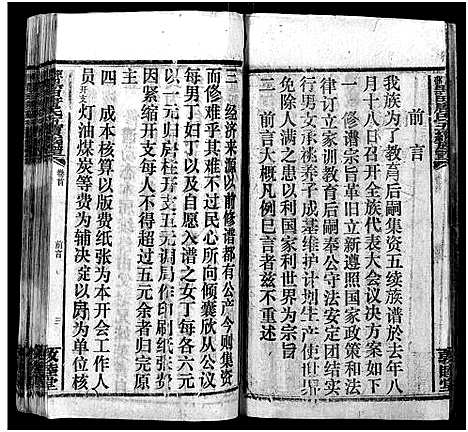 前言
我族为了教育后嗣集资五续族谱於去年八
月十八召开全族代表大会议决方案如下
一 修谱宗旨革旧立新遵照国家政策和法
律订立家训教育后嗣奉公守法安定团结实
行男女承祧养子成基维护计划生产使世界
免除人满之患以利国家利世界为宗旨
二 前言大概凡例已言者兹不重述
三 经济来源以前修谱都有公产今则集资
而修难乎其难不过民心所向倾襄欣从公议
每男丁妇丁以及自愿入谱之女丁每各六元
以一元归房柱开支五元调局作印刷纸张费
主因紧缩开支每人不得超过五元余者归完原
四 成本核算以版费纸张为本开会工作人
员开支灯油煤炭等费为辅决定以房为单位核
卷首
前言
三
敦睦堂